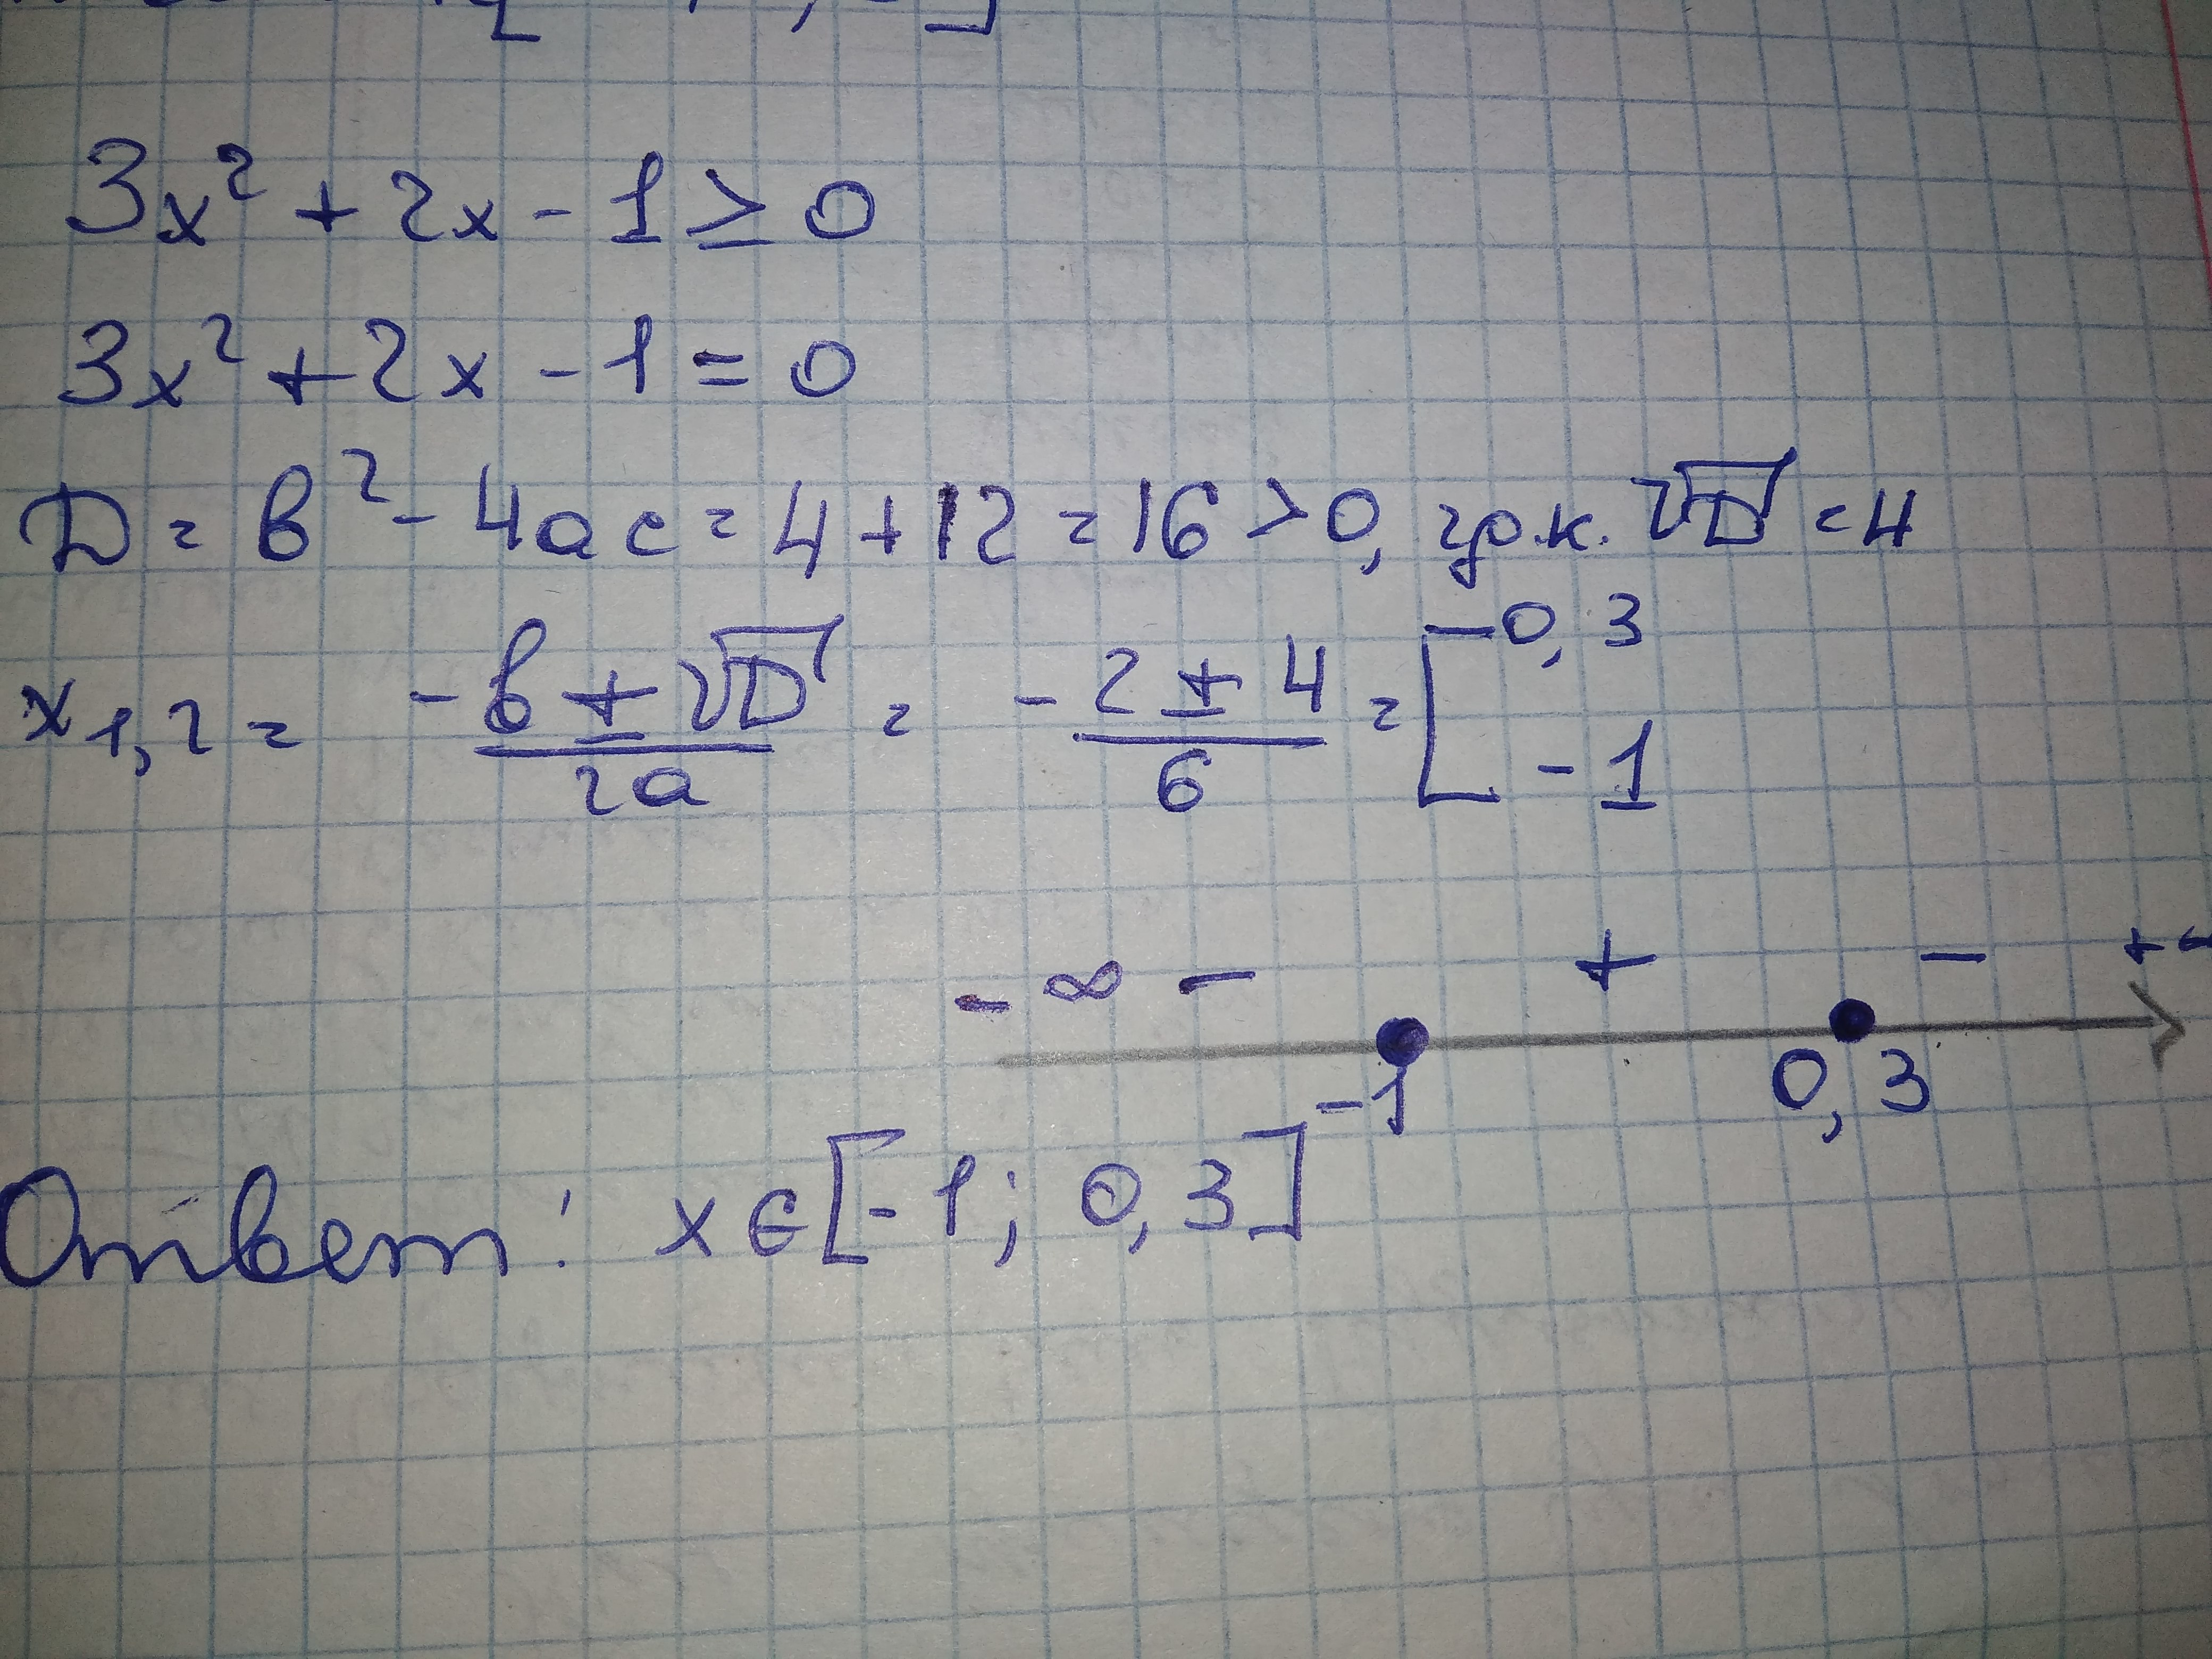 3x² + 2x - 1 ≥ 0
3x² + 2x - 1 = 0
D = b² - 4ac = 4 + 12 = 16 > 0, 2р.к. √D = 4
x₁,₂ = (-b ± √D) / 2a = (-2 ± 4) / 6 = [ 0,3
-1
- ∞ - + - +
-1 0,3
Ответ: x ∈ [-1; 0,3]